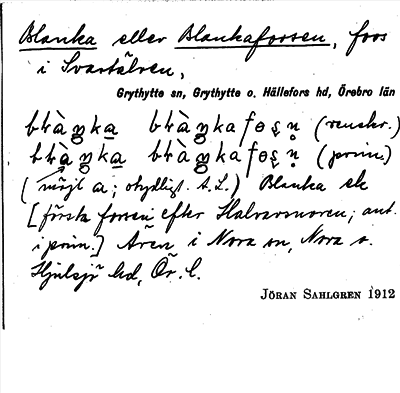 Blanka eller Blankaforsen, fors
i Svartälven,
Grythytte sn, Grythytte o. Hällefors hd, Örebro län
blàŋka blàŋkafɵʂn̥ (renskr.)
blàŋka blàŋkafɵʂn̥ (prim.)
(möjl. a; otydligt. A.L.) Blanka
[första forsen efter Halvarsnoren; ant.
i prim.] Åren i Nora sn, Nora o.
Hjulsjö hd, Ör. l.
JÖRAN SAHLGREN 1912